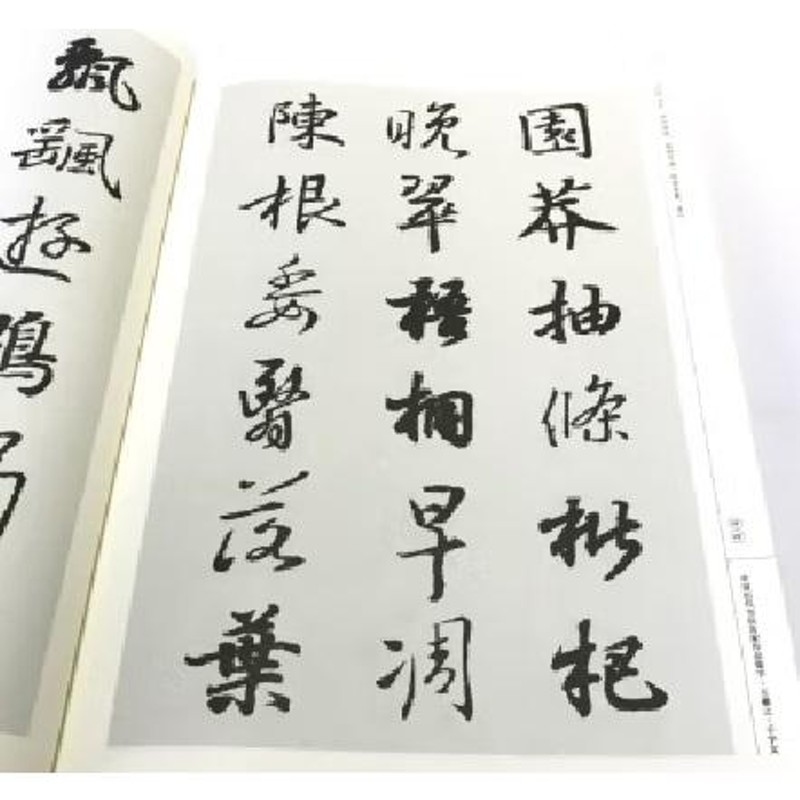 園莽抽條枇杷
晚翠梧桐早凋
陳根委翳落葉
飄颻遊